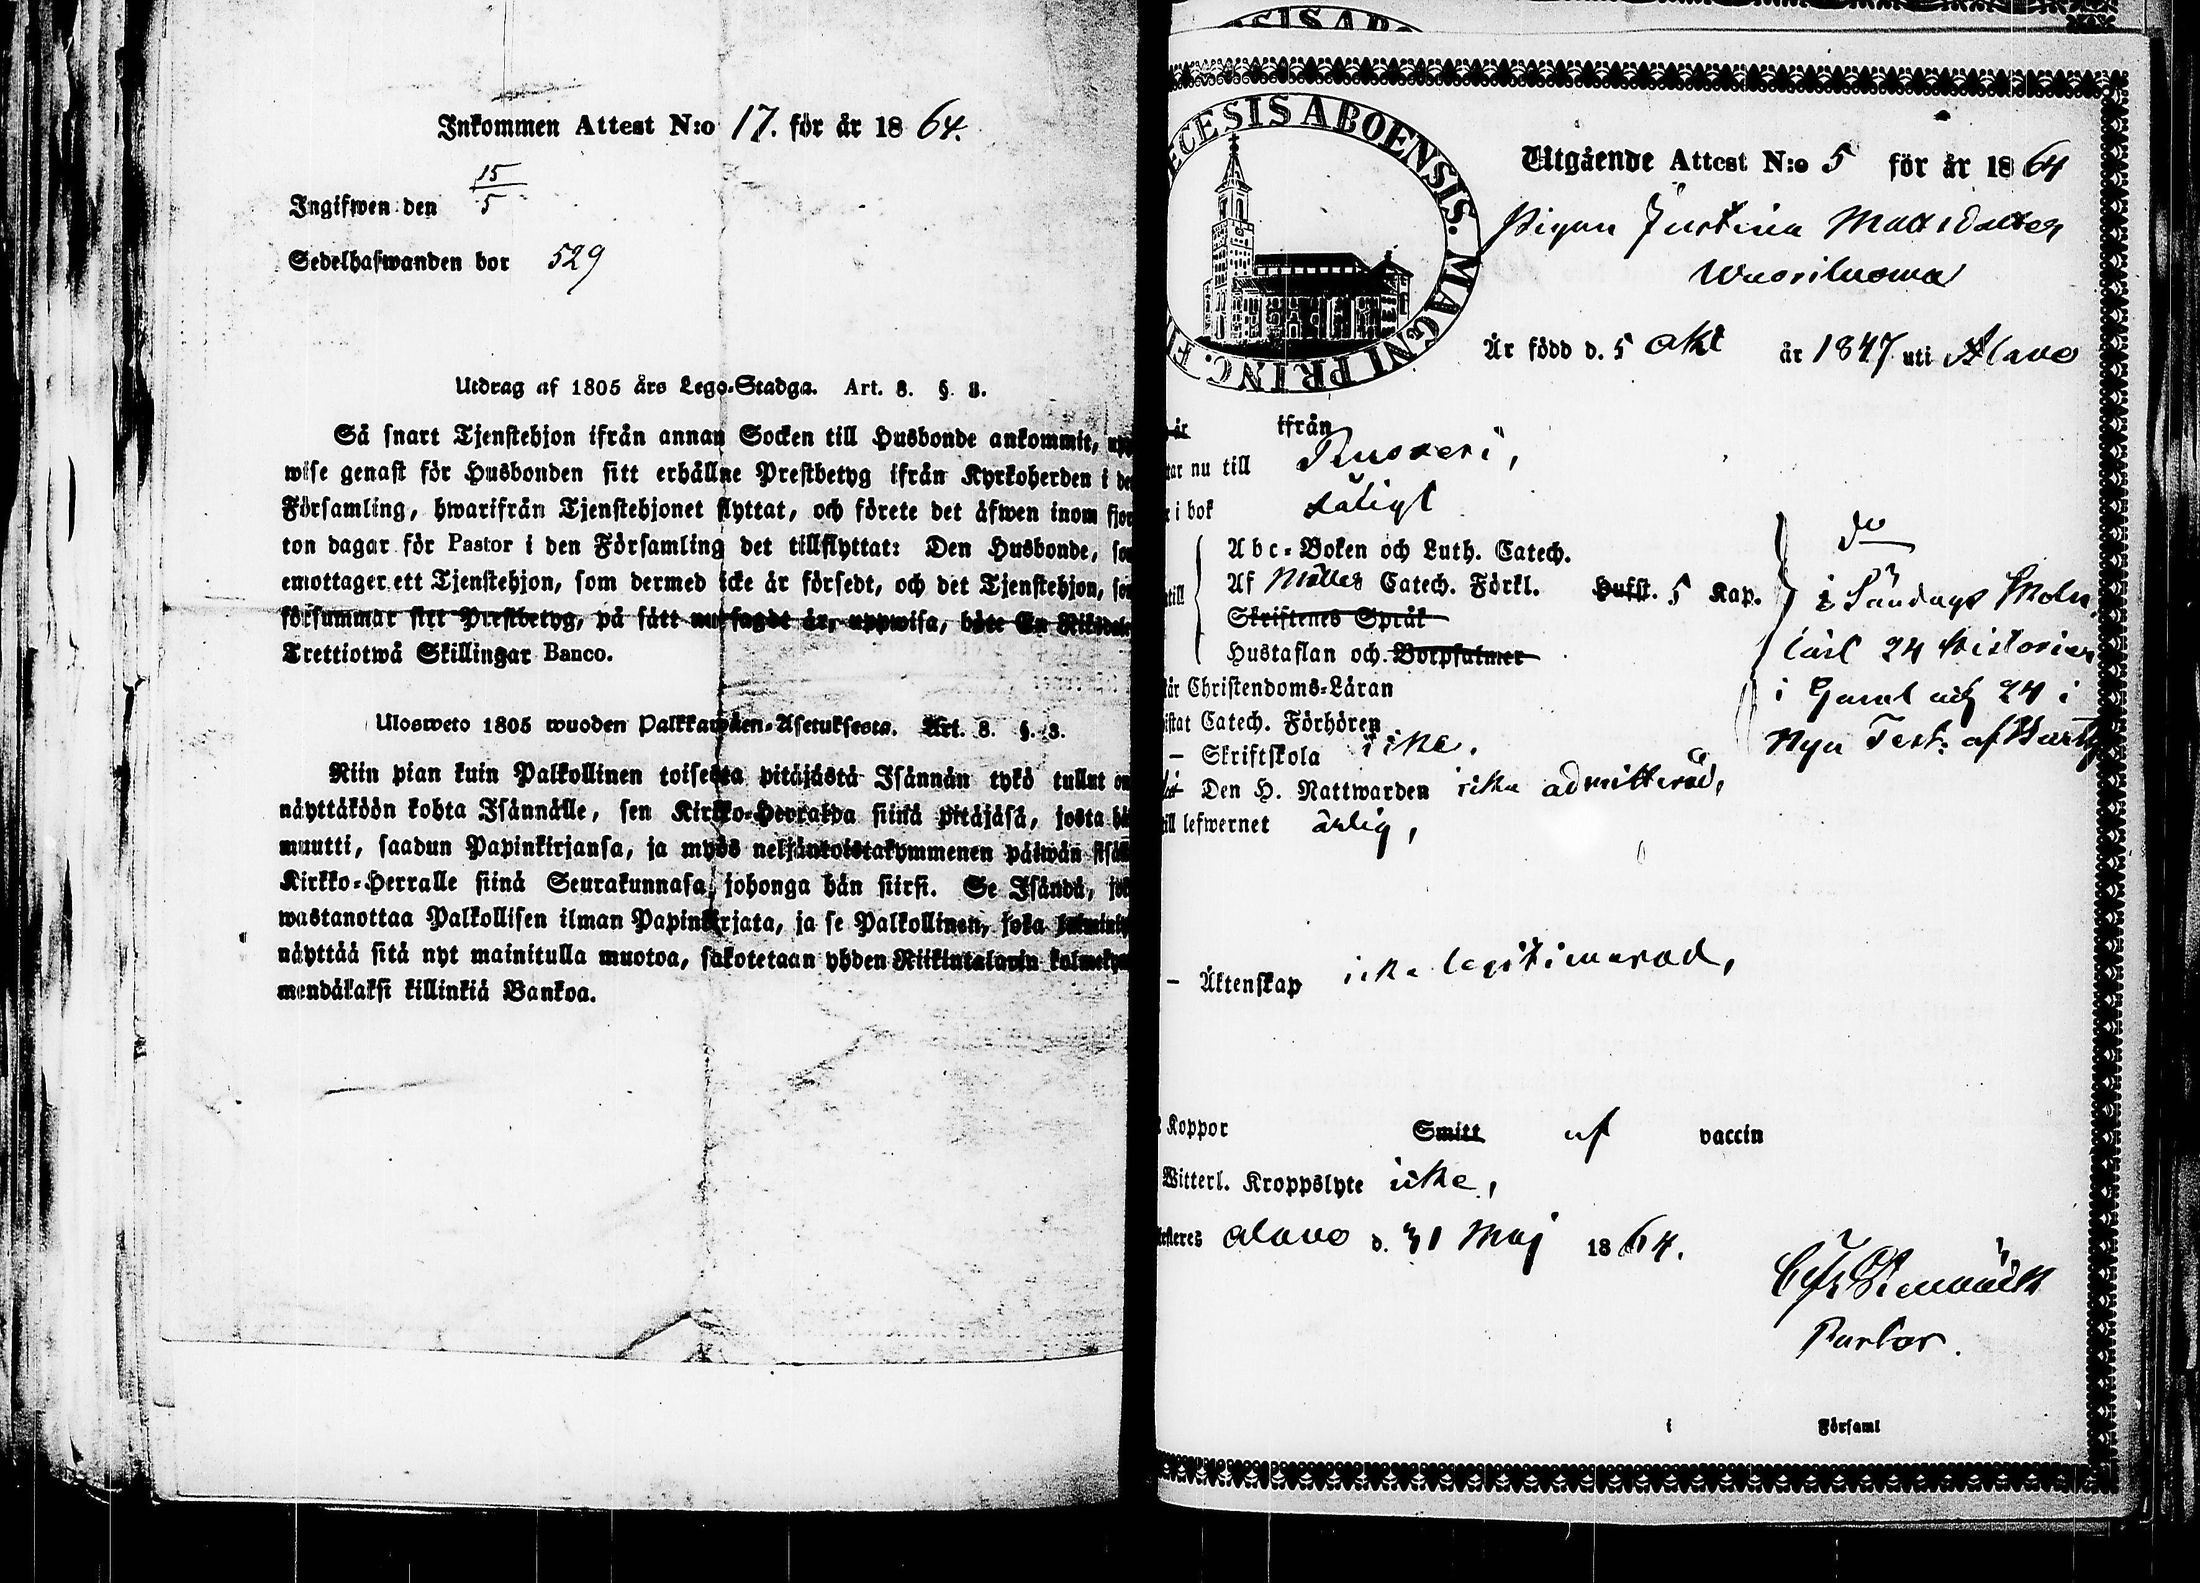 Inkommen Attest N:o 17. för år 1864.
Ingifwen den 15/5
Sedelhafwanden bor 529
Utdrag af 1805 års Lego-Stadga. Art. 8. §. 3.
Så snart Tjenstehjon ifrån annan Socken till Husbonde ankommit,
wise genast för Husbonden sitt erhållne Prestbetyg ifrån Kyrkoherden i
Församling, hwarifrån Tjenstehjonet flyttat, och förete det äfwen inom
ton dagar för Pastor i den Församling det tillflyttat: Den Husbonde,
emottager ett Tjenstehjon, som dermed icke är försedt, och det Tjenstehjon,
försummar sitt Prestbetyg, på sätt nu sagdt är, uppwisa, böte En
Trettiotwå Skillingar Banco.
Ulosweto 1805 wuoden Palkkawäen-Asetuksesta. Art. 8. §. 3.
Niin pian kuin Palkollinen toisesta pitäjästä Isännän tykö tullut on
näyttäköön kohta Isännälle, sen Kirkko-Herralda siinä pitäjäsä, josta
muutti, saadun Papinkirjansa, ja myös neljäntoistakymmenen päiwän
Kirkko-Herralle siinä Seurakunnasa, johonga hän siirsi. Se Isändä,
wastanottaa Palkollisen ilman Papinkirjata, ja se Palkollinen, joka
näyttää sitä nyt mainitulla muotoa, sakotetaan yhden Riikintalarin
mendäkaksi killinkiä Bankoa.
DIECESIS ABOENSIS. MAGNI PRINC. FI
Utgående Attest N:o 5 för år 1864
Pigan Justina Mattsdotter
Wuoriluoma
Är född d. 5 Okt år 1847 uti Alavo
är ifrån
nu till Ruoveri,
i bok däligt
Abc-Boken och Luth. Catech.
Af Möllers Catech. Förkl. Hufst. 5 Kap.
Skriftenes Språk
Hustaflan och Botpsalmer
do
i Söndags Skola
läst 24 Historier
i Gaml och 24 i
Nya Test: af
Christendoms-Läran
Catech. Förhören
– Skriftskola icke.
Den H. Nattwarden icke admitterad,
till lefwernet ärlig,
– Äktenskap icke legitimerad,
Koppor Smitt af vaccin
Witterl. Kroppslyte icke,
Alavo d. 31 Maj 1864.
Pastor.
i Församl